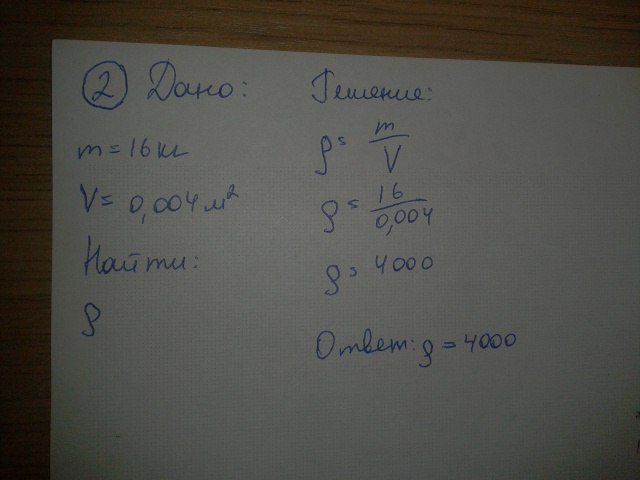 2 Дано:
m = 16 кг
V = 0,004 м²
Найти:
ρ
Решение:
ρ = m/V
ρ = 16/0,004
ρ = 4000
Ответ: ρ = 4000